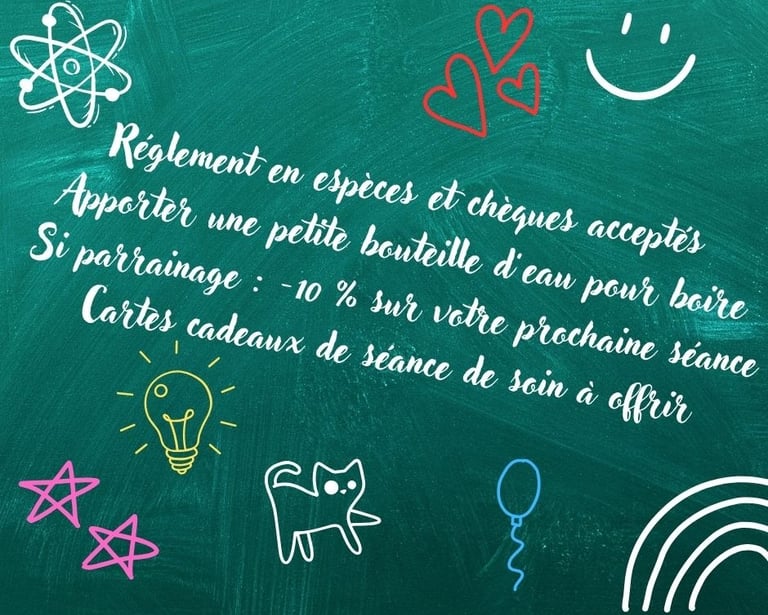 Réglement en espèces et chèques acceptés
Apporter une petite bouteille d'eau pour boire
Si parrainage : -10 % sur votre prochaine séance
Cartes cadeaux de séance de soin à offrir